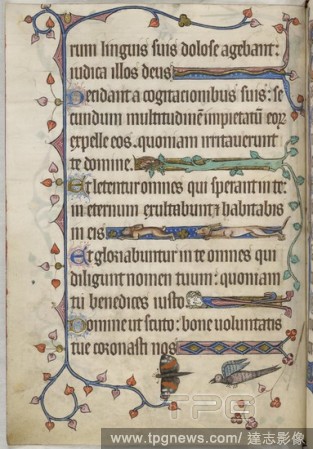 rum linguis suis dolose agebant:
iudica illos deus
Decidant a cogitacionibus suis: se
cundum multitudinē impietatū eoꝝ
expelle eos. quoniam irritauerunt
te domine.
Et letentur omnes qui sperant in te:
in eternum exultabunt ⁊ habitabis
in eis
Et gloriabuntur in te omnes qui
diligunt nomen tuum: quoniam
tu benedices iusto
Domine ut scuto: bone voluntatis
tue coronasti nos
TPG
www.tpgnews.com/達志影像